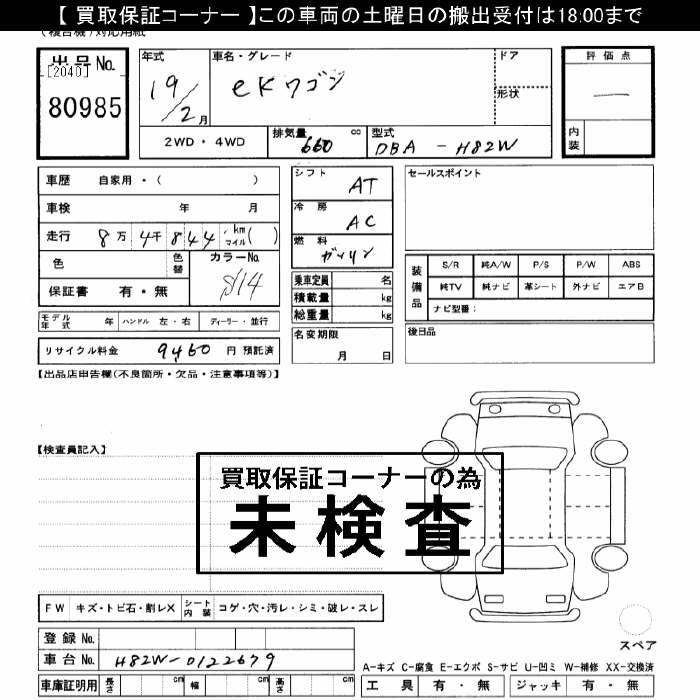 【 買取保証コーナー 】この車両の土曜日の搬出受付は18:00まで
(複合機)対応用紙
出品No.
[2040]
80985
年式
19/2月
車名・グレード
eKワゴン
ドア
形状
評価点
―
内装
2WD・4WD
排気量 660 cc
型式 DBA - H82W
車歴 自家用・( )
車検 年 月
走行 8万 4千 8 4 4 km マイル ( )
色
色替
カラーNo.
保証書 有・無
シフト AT
冷房 AC
燃料 ガソリン
乗車定員 名
積載量 kg
総重量 kg
セールスポイント
装備品
S/R 純A/W P/S P/W ABS
純TV 純ナビ 革シート 外ナビ エアB
ナビ型番:
モデル年式 年 ハンドル 左・右 ディーラー・並行
リサイクル料金 9460 円 預託済
名変期限
月 日
後日品
【出品店申告欄(不良箇所・欠品・注意事項等)】
【検査員記入】
買取保証コーナーの為
未検査
FW キズ・トビ石・割レX シート内装 コゲ・穴・汚レ・シミ・破レ・スレ
登録No.
車台No. H82W-0122679
車庫証明用 長さ cm 幅 cm 高さ cm
スペア
A-キズ C-腐食 E-エクボ S-サビ U-凹ミ W-補修 XX-交換済
工具 有・無 ジャッキ 有・無